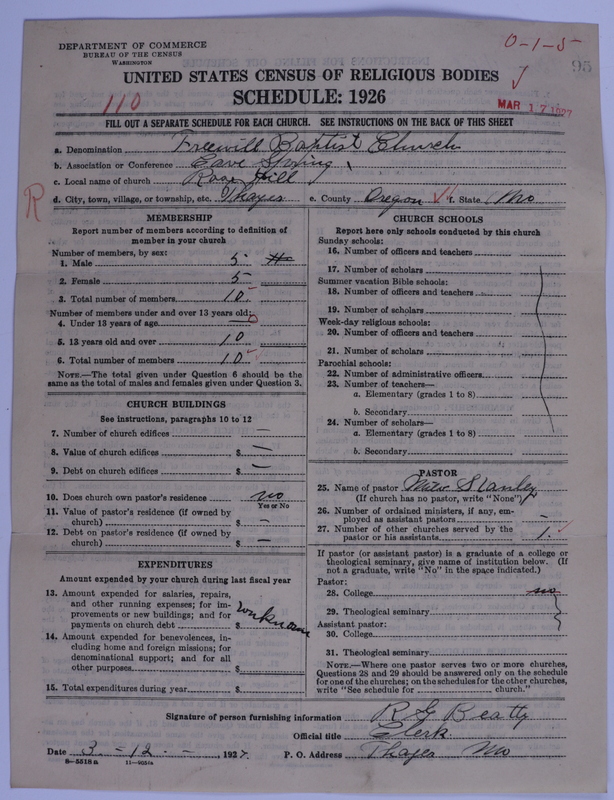 DEPARTMENT OF COMMERCE
BUREAU OF THE CENSUS
WASHINGTON
0-1-5
95
UNITED STATES CENSUS OF RELIGIOUS BODIES
SCHEDULE: 1926
110
MAR 17 1927
FILL OUT A SEPARATE SCHEDULE FOR EACH CHURCH. SEE INSTRUCTIONS ON THE BACK OF THIS SHEET
a. Denomination Freewill Baptist Church
b. Association or Conference Eave Spring
c. Local name of church Rose Hill
d. City, town, village, or township, etc. Thayer e. County Oregon f. State Mo
R
MEMBERSHIP
Report number of members according to definition of member in your church
Number of members, by sex:
1. Male 5
2. Female 5
3. Total number of members 10
Number of members under and over 13 years old:
4. Under 13 years of age 0
5. 13 years old and over 10
6. Total number of members 10
NOTE.—The total given under Question 6 should be the
same as the total of males and females given under Question 3.
CHURCH BUILDINGS
See instructions, paragraphs 10 to 12
7. Number of church edifices —
8. Value of church edifices $ —
9. Debt on church edifices $ —
10. Does church own pastor's residence no
Yes or No
11. Value of pastor's residence (if owned by
church) $ —
12. Debt on pastor's residence (if owned by
church) $ —
EXPENDITURES
Amount expended by your church during last fiscal year
13. Amount expended for salaries, repairs,
and other running expenses; for im-
provements or new buildings; and for
payments on church debt $ unknown
14. Amount expended for benevolences, in-
cluding home and foreign missions; for
denominational support; and for all
other purposes $
15. Total expenditures during year $
CHURCH SCHOOLS
Report here only schools conducted by this church
Sunday schools:
16. Number of officers and teachers
17. Number of scholars
Summer vacation Bible schools:
18. Number of officers and teachers
19. Number of scholars
Week-day religious schools:
20. Number of officers and teachers
21. Number of scholars
Parochial schools:
22. Number of administrative officers
23. Number of teachers—
a. Elementary (grades 1 to 8)
b. Secondary
24. Number of scholars—
a. Elementary (grades 1 to 8)
b. Secondary
PASTOR
25. Name of pastor Stanley
(If church has no pastor, write "None")
26. Number of ordained ministers, if any, em-
ployed as assistant pastors —
27. Number of other churches served by the
pastor or his assistants 1
If pastor (or assistant pastor) is a graduate of a college or
theological seminary, give name of institution below. (If
not a graduate, write "No" in the space indicated.)
Pastor:
28. College no
29. Theological seminary
Assistant pastor:
30. College
31. Theological seminary
NOTE.—Where one pastor serves two or more churches,
Questions 28 and 29 should be answered only on the schedule
for one of the churches; on the schedules for the other churches,
write "See schedule for church."
Signature of person furnishing information R G Beatty
Official title Clerk
Date 3-12-, 1927. P. O. Address Thayer Mo
8-5518a 11-9054a